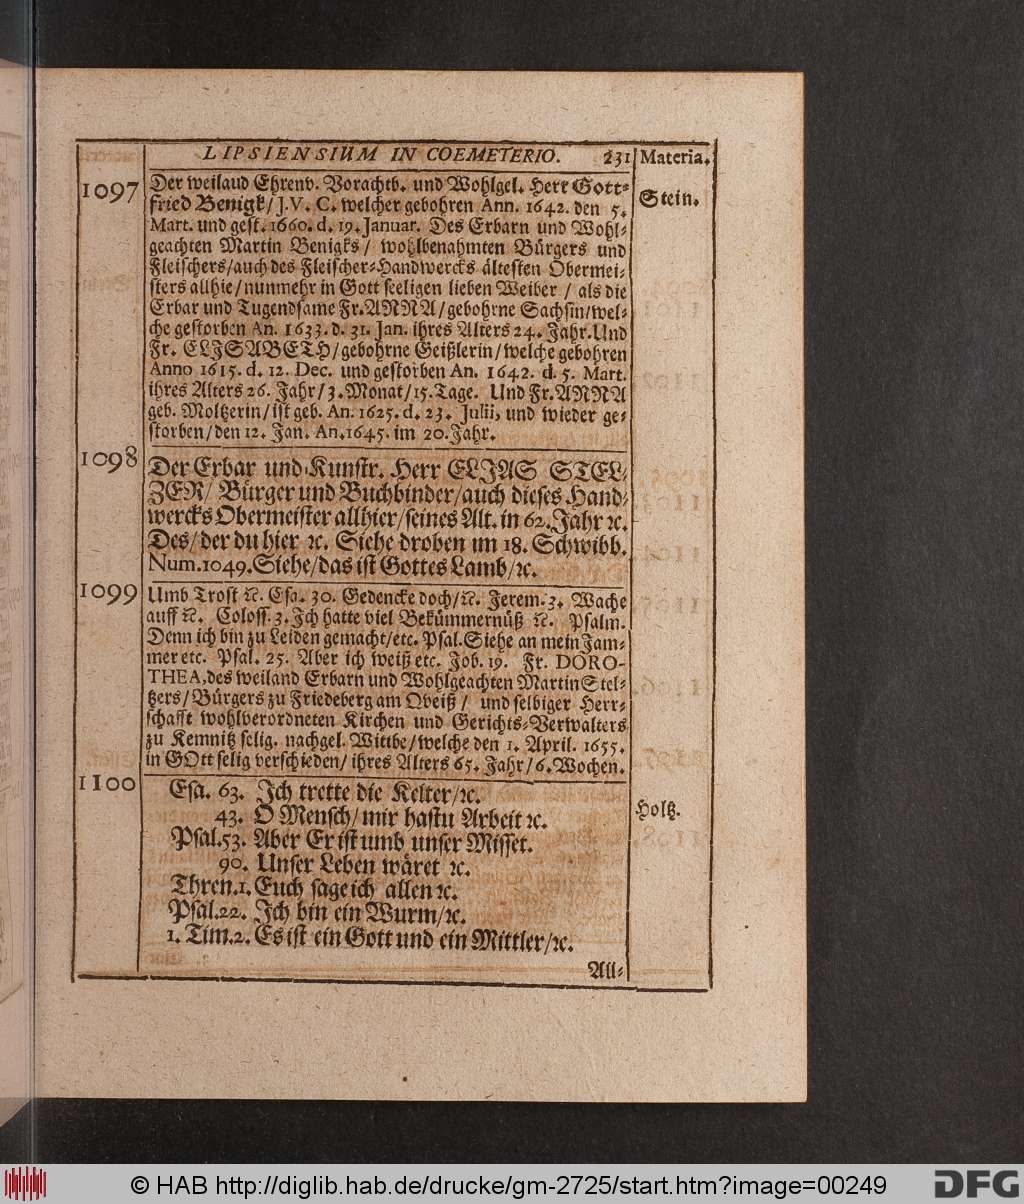 LIPSIENSIUM IN COEMETERIO. 231 Materia.
1097 Der weilaud Ehrenv. Vorachtb. und Wohlgel. Herr Gott- Stein.
fried Benigk/ J.V. C. welcher gebohren Ann. 1642. den 5.
Mart. und gest. 1660. d. 19. Januar. Des Erbarn und Wohl-
geachten Martin Benigks/ wohlbenahmten Bürgers und
Fleischers/auch des Fleischer-Handwercks ältesten Obermei-
sters allhie/nunmehr in Gott seeligen lieben Weiber / als die
Erbar und Tugendsame Fr. ANNA/gebohrne Sachsin/wel-
che gestorben An. 1633. d. 31. Jan. ihres Alters 24. Jahr. Und
Fr. ELISABETH/gebohrne Geißlerin/welche gebohren
Anno 1615. d. 12. Dec. und gestorben An. 1642. d. 5. Mart.
ihres Alters 26. Jahr/ 3. Monat/15. Tage. Und Fr. ANNA
geb. Moltzerin/ist geb. An. 1625. d. 23. Julii, und wieder ge-
storben/den 12. Jan. An. 1645. im 20. Jahr.
1098 Der Erbar und Kunstr. Herr ELIAS STEL-
ZER/ Bürger und Buchbinder/auch dieses Hand-
wercks Obermeister allhier/seines Alt. in 62. Jahr ꝛc.
Des/der du hier ꝛc. Siehe droben im 18. Schwibb.
Num. 1049. Siehe/das ist Gottes Lamb/ꝛc.
1099 Umb Trost ꝛc. Esa. 30. Gedencke doch/ꝛc. Jerem. 3. Wache
auff ꝛc. Coloss. 3. Ich hatte viel Bekümmernüß ꝛc. Psalm.
Denn ich bin zu Leiden gemacht/etc. Psal. Siehe an mein Jam-
mer etc. Psal. 25. Aber ich weiß etc. Job. 19. Fr. DORO-
THEA, des weiland Erbarn und Wohlgeachten Martin Stel-
tzers/ Bürgers zu Friedeberg am Qveiß / und selbiger Herr-
schafft wohlverordneten Kirchen und Gerichts-Verwalters
zu Kemnitz selig. nachgel. Wittbe/welche den 1. April. 1655.
in GOtt selig verschieden/ ihres Alters 65. Jahr/6. Wochen.
1100 Esa. 63. Ich trette die Kelter/ꝛc. Holtz.
43. O Mensch/mir hastu Arbeit ꝛc.
Psal. 53. Aber Er ist umb unser Misset.
90. Unser Leben wäret ꝛc.
Thren. 1. Euch sage ich allen ꝛc.
Psal. 22. Ich bin ein Wurm/ꝛc.
1. Tim. 2. Es ist ein Gott und ein Mittler/ꝛc.
All-
© HAB http://diglib.hab.de/drucke/gm-2725/start.htm?image=00249
DFG